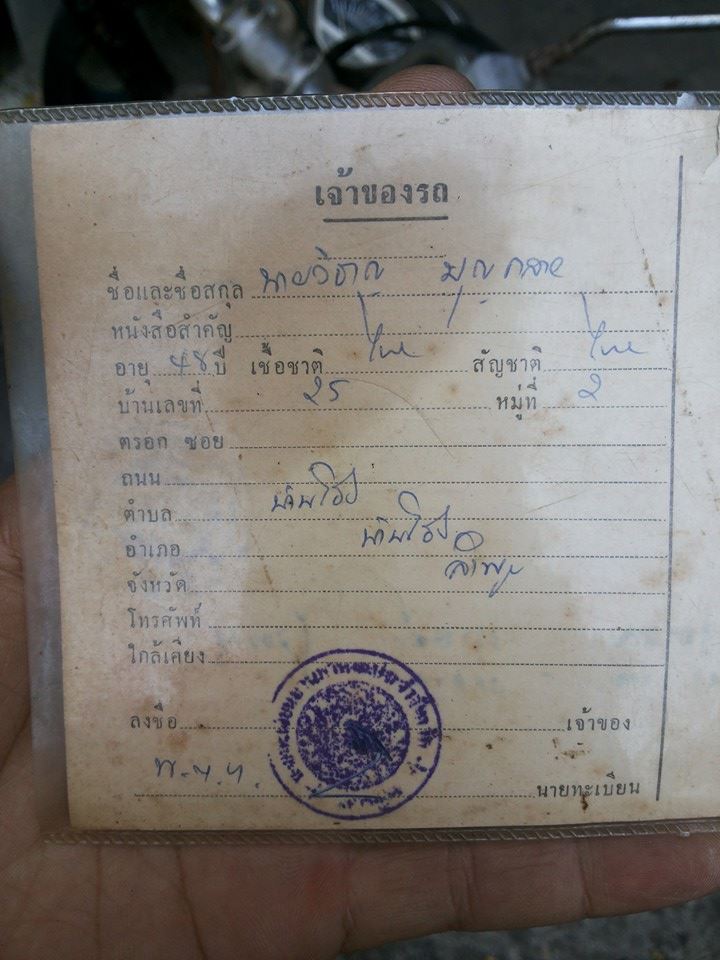 เจ้าของรถ
ชื่อและชื่อสกุล นายวิชาญ
หนังสือสำคัญ
อายุ 48 ปี เชื้อชาติ ไทย สัญชาติ ไทย
บ้านเลขที่ 25 หมู่ที่ 2
ตรอก ซอย
ถนน
ตำบล บ้านโฮ่ง
อำเภอ บ้านโฮ่ง
จังหวัด ลำพูน
โทรศัพท์
ใกล้เคียง
ลงชื่อ เจ้าของ
นายทะเบียน